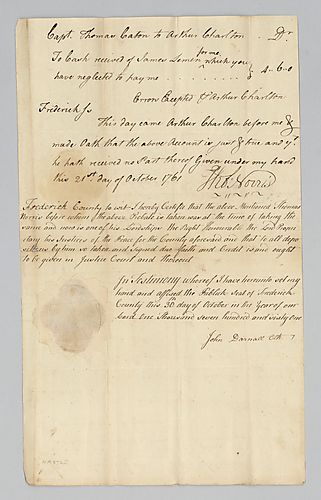 Capt. Thomas Caton to Arthur Charlton . . Dr
To Cash received of James Lemen for me which you
have neglected to pay me . . . . . . . . . } 4-6-0
Error Excepted Pr Arthur Charlton
Frederick Js
This day came Arthur Charlton before me &
made Oath that the above Account is just & true and yt
he hath received no Part thereof Given under my hand
this 21st day of October 1761
Thos. Norris
Frederick County to wit I hereby Certifie that the above Mentioned Thomas
Norris before whom the above Probate is taken was at the time of taking the
same and now is one of his Lordships the Right Honourable the Lord Proprie
tary his Justices of the Peace for the County aforesaid and that to all depo
sitions by him so taken and Signed due faith and Credit is and ought
to be given in Justice Court and thereout
In Testimony whereof I have hereunto set my
hand and affixed the Publick Seal of Frederick
County this 30th day of October in the Year of our
Lord One thousand seven hundred and sixty one
John Darnall Clk